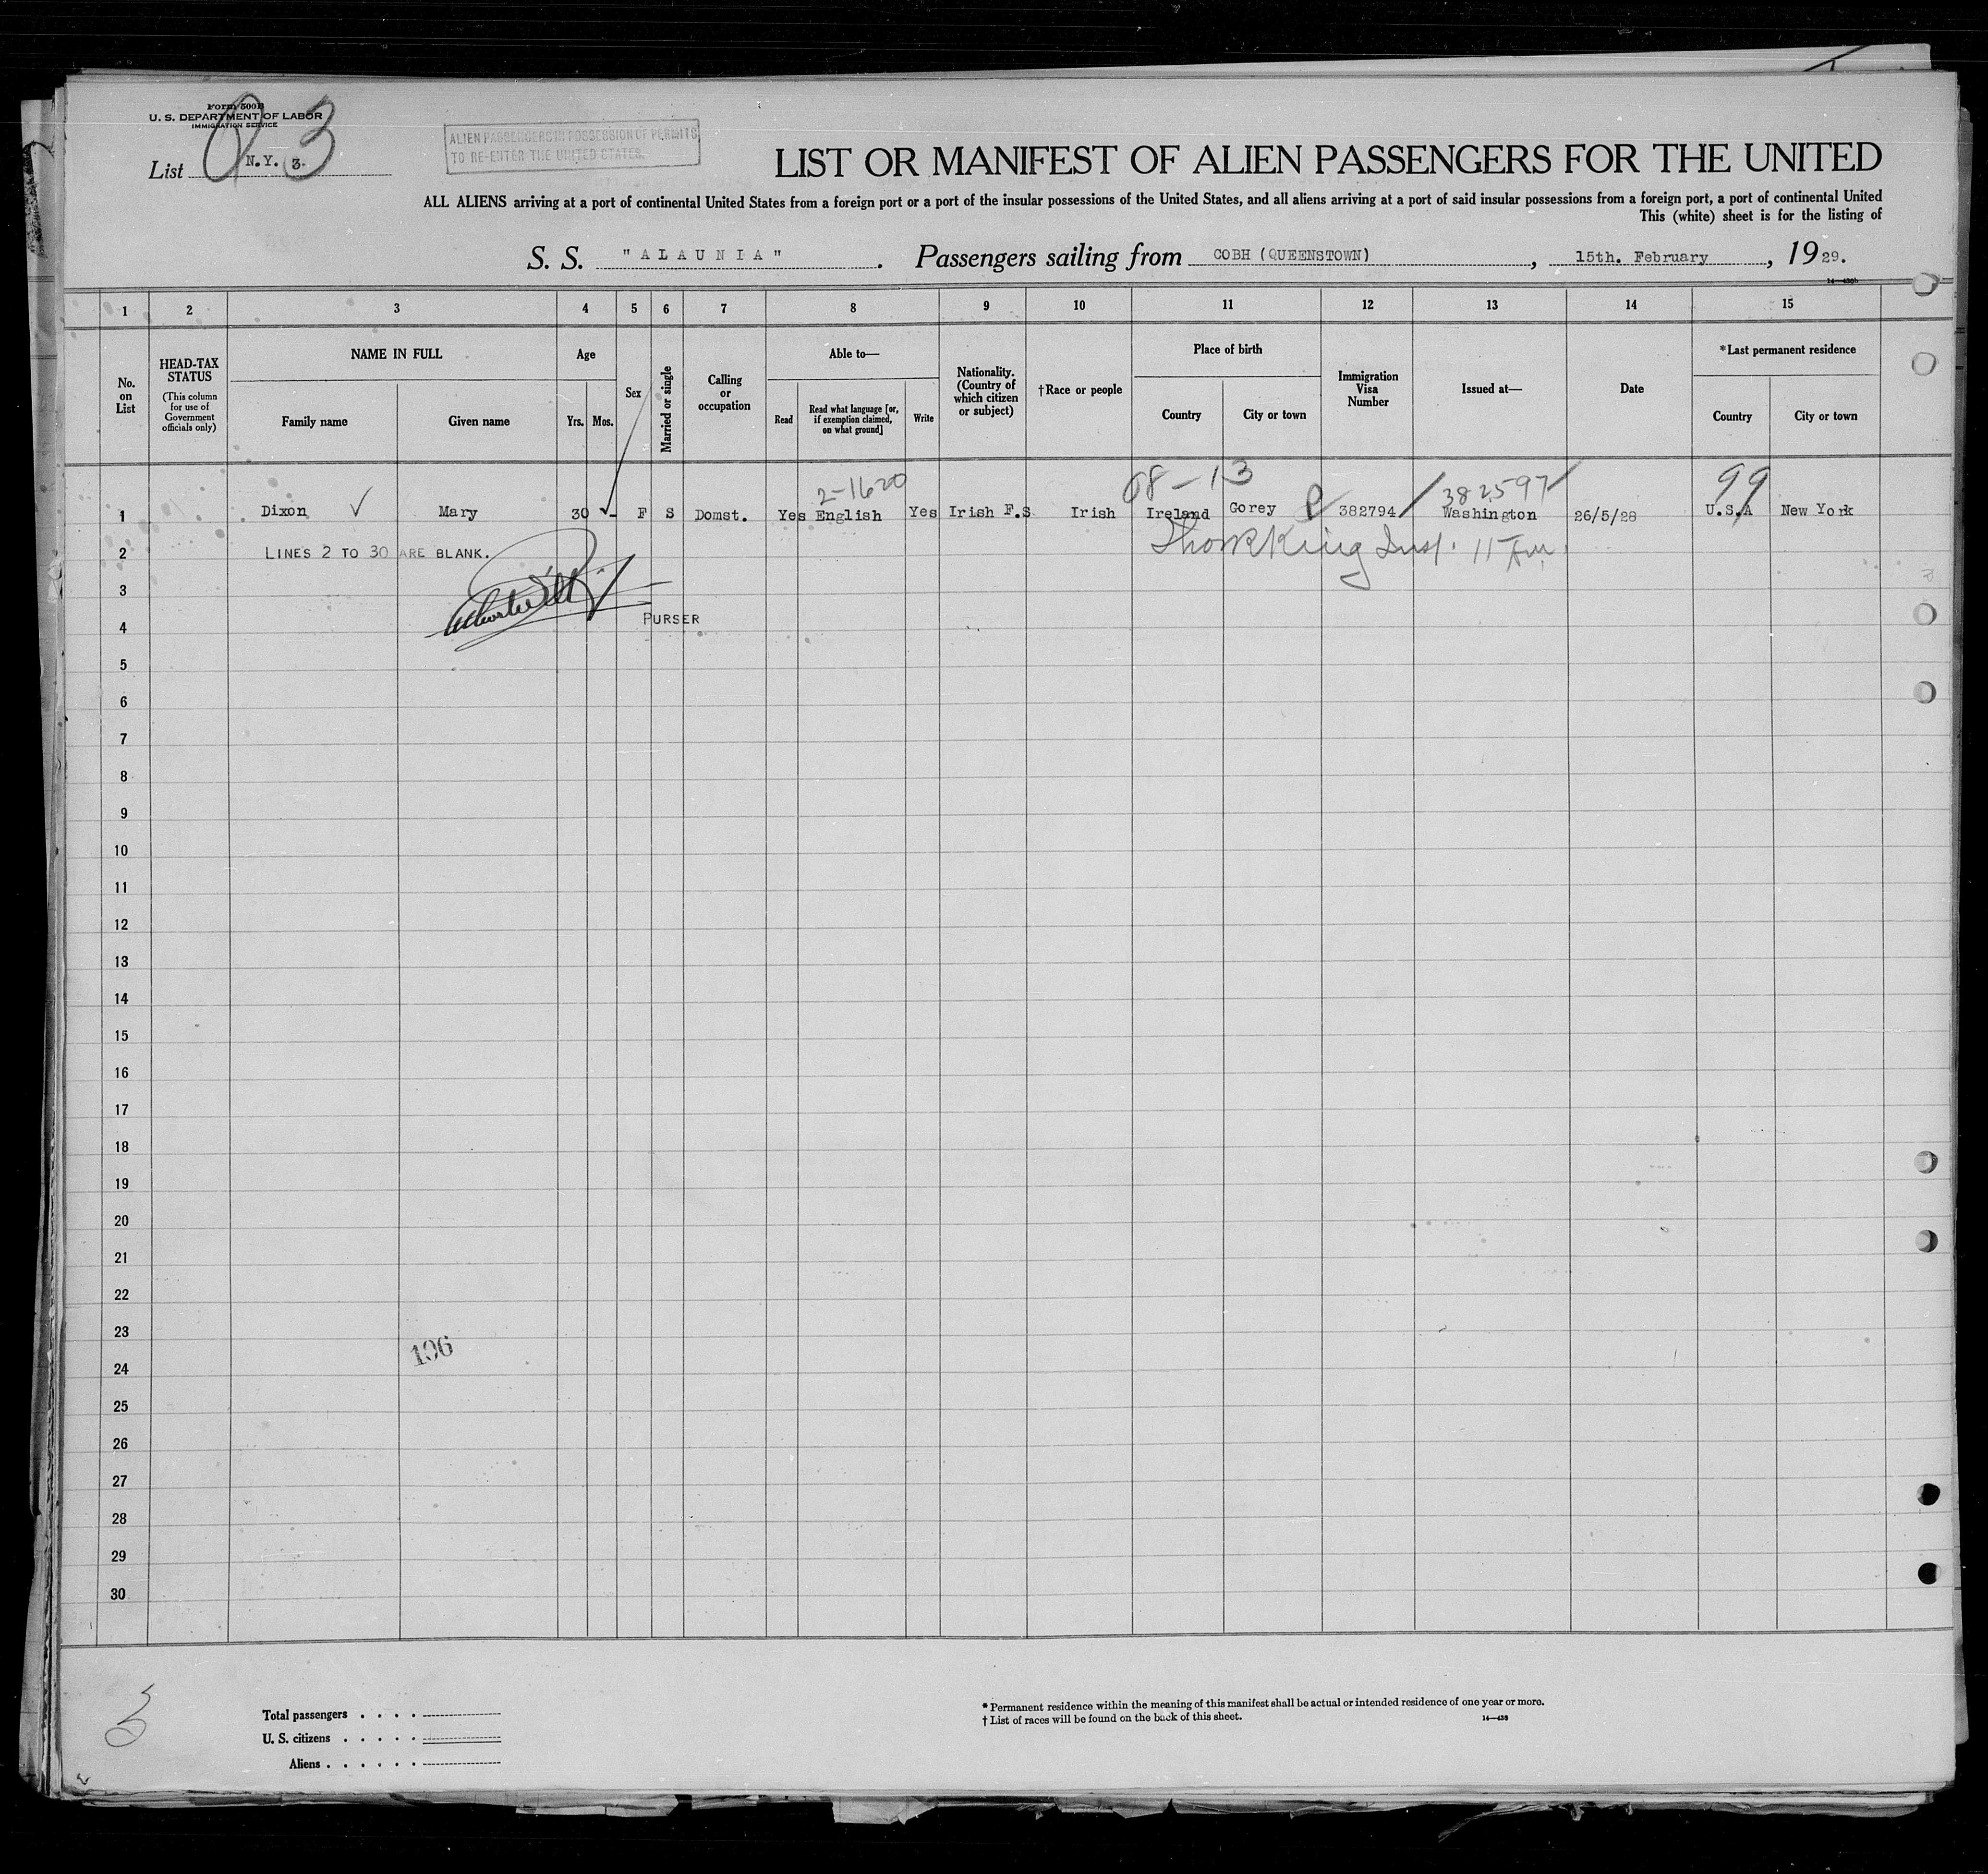 Form 500B
U. S. DEPARTMENT OF LABOR
IMMIGRATION SERVICE
List N.Y. 3. 3
ALIEN PASSENGERS IN POSSESSION OF PERMITS
TO RE-ENTER THE UNITED STATES.
LIST OR MANIFEST OF ALIEN PASSENGERS FOR THE UNITED
ALL ALIENS arriving at a port of continental United States from a foreign port or a port of the insular possessions of the United States, and all aliens arriving at a port of said insular possessions from a foreign port, a port of continental United
This (white) sheet is for the listing of
S. S. "ALAUNIA". Passengers sailing from COBH (QUEENSTOWN), 15th. February, 1929.
1 2 3 4 5 6 7 8 9 10 11 12 13 14 15
No. on List
HEAD-TAX STATUS
(This column for use of Government officials only)
NAME IN FULL
Family name
Given name
Age
Yrs. Mos.
Sex
Married or single
Calling or occupation
Able to—
Read
Read what language [or, if exemption claimed, on what ground]
Write
Nationality. (Country of which citizen or subject)
†Race or people
Place of birth
Country
City or town
Immigration Visa Number
Issued at—
Date
*Last permanent residence
Country
City or town
2-1620 08-13 382597 99
1 Dixon ✓ Mary 30 - F S Domst. Yes English Yes Irish F.S Irish Ireland Gorey 382794 Washington 26/5/28 U.S.A New York
2 LINES 2 TO 30 ARE BLANK.
3
4 PURSER
5
6
7
8
9
10
11
12
13
14
15
16
17
18
19
20
21
22
23
106
24
25
26
27
28
29
30
3
Total passengers
U. S. citizens
Aliens
* Permanent residence within the meaning of this manifest shall be actual or intended residence of one year or more.
† List of races will be found on the back of this sheet.
14—438